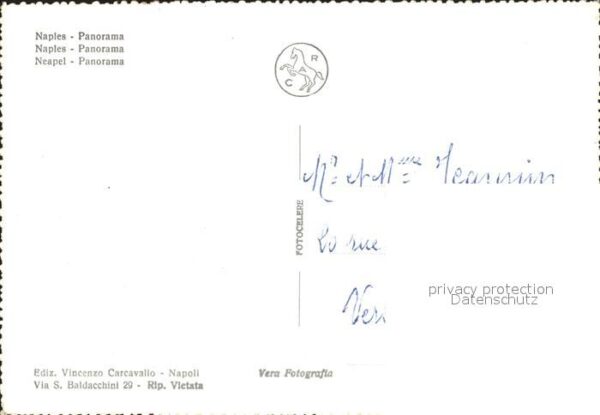 Naples - Panorama
Naples - Panorama
Neapel - Panorama
C A R
FOTOCELERE
Mr et Mme Jeannin
rue
privacy protection
Datenschutz
Ediz. Vincenzo Carcavallo - Napoli
Via S. Baldacchini 29 - Rip. Vietata
Vera Fotografia